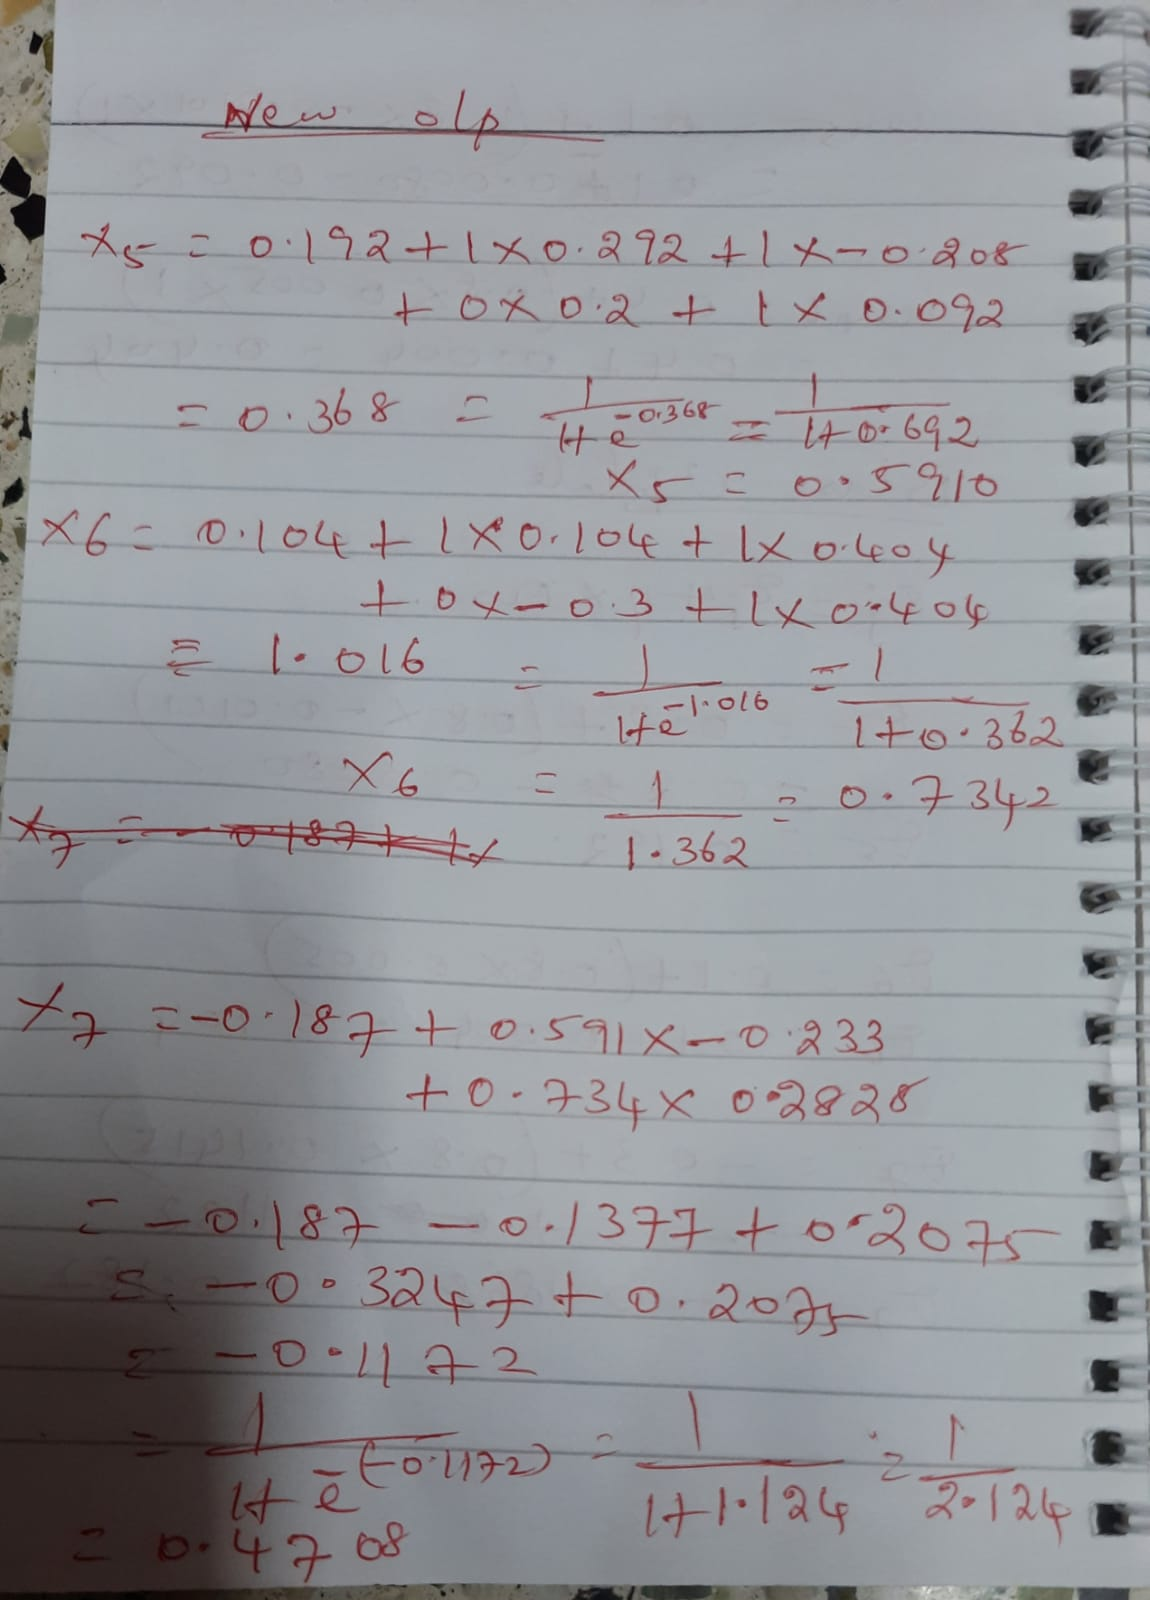 New olp
x5 = 0.192 + 1 x 0.292 + 1 x - 0.208
+ 0 x 0.2 + 1 x 0.092
= 0.368 = 1/1+e^-0.368 = 1/1+0.692
x5 = 0.5910
x6 = 0.104 + 1 x 0.104 + 1 x 0.404
+ 0 x - 0.3 + 1 x 0.404
= 1.016 = 1/1+e^-1.016 = 1/1+0.362
x6 = 1/1.362 = 0.7342
x7 = - 0.187 + 1x
x7 = -0.187 + 0.591 x - 0.233
+ 0.734 x 0.2828
= - 0.187 - 0.1377 + 0.2075
= - 0.3247 + 0.2075
= - 0.1172
= 1/1+e^-(-0.1172) = 1/1+1.124 = 1/2.124
= 0.4708